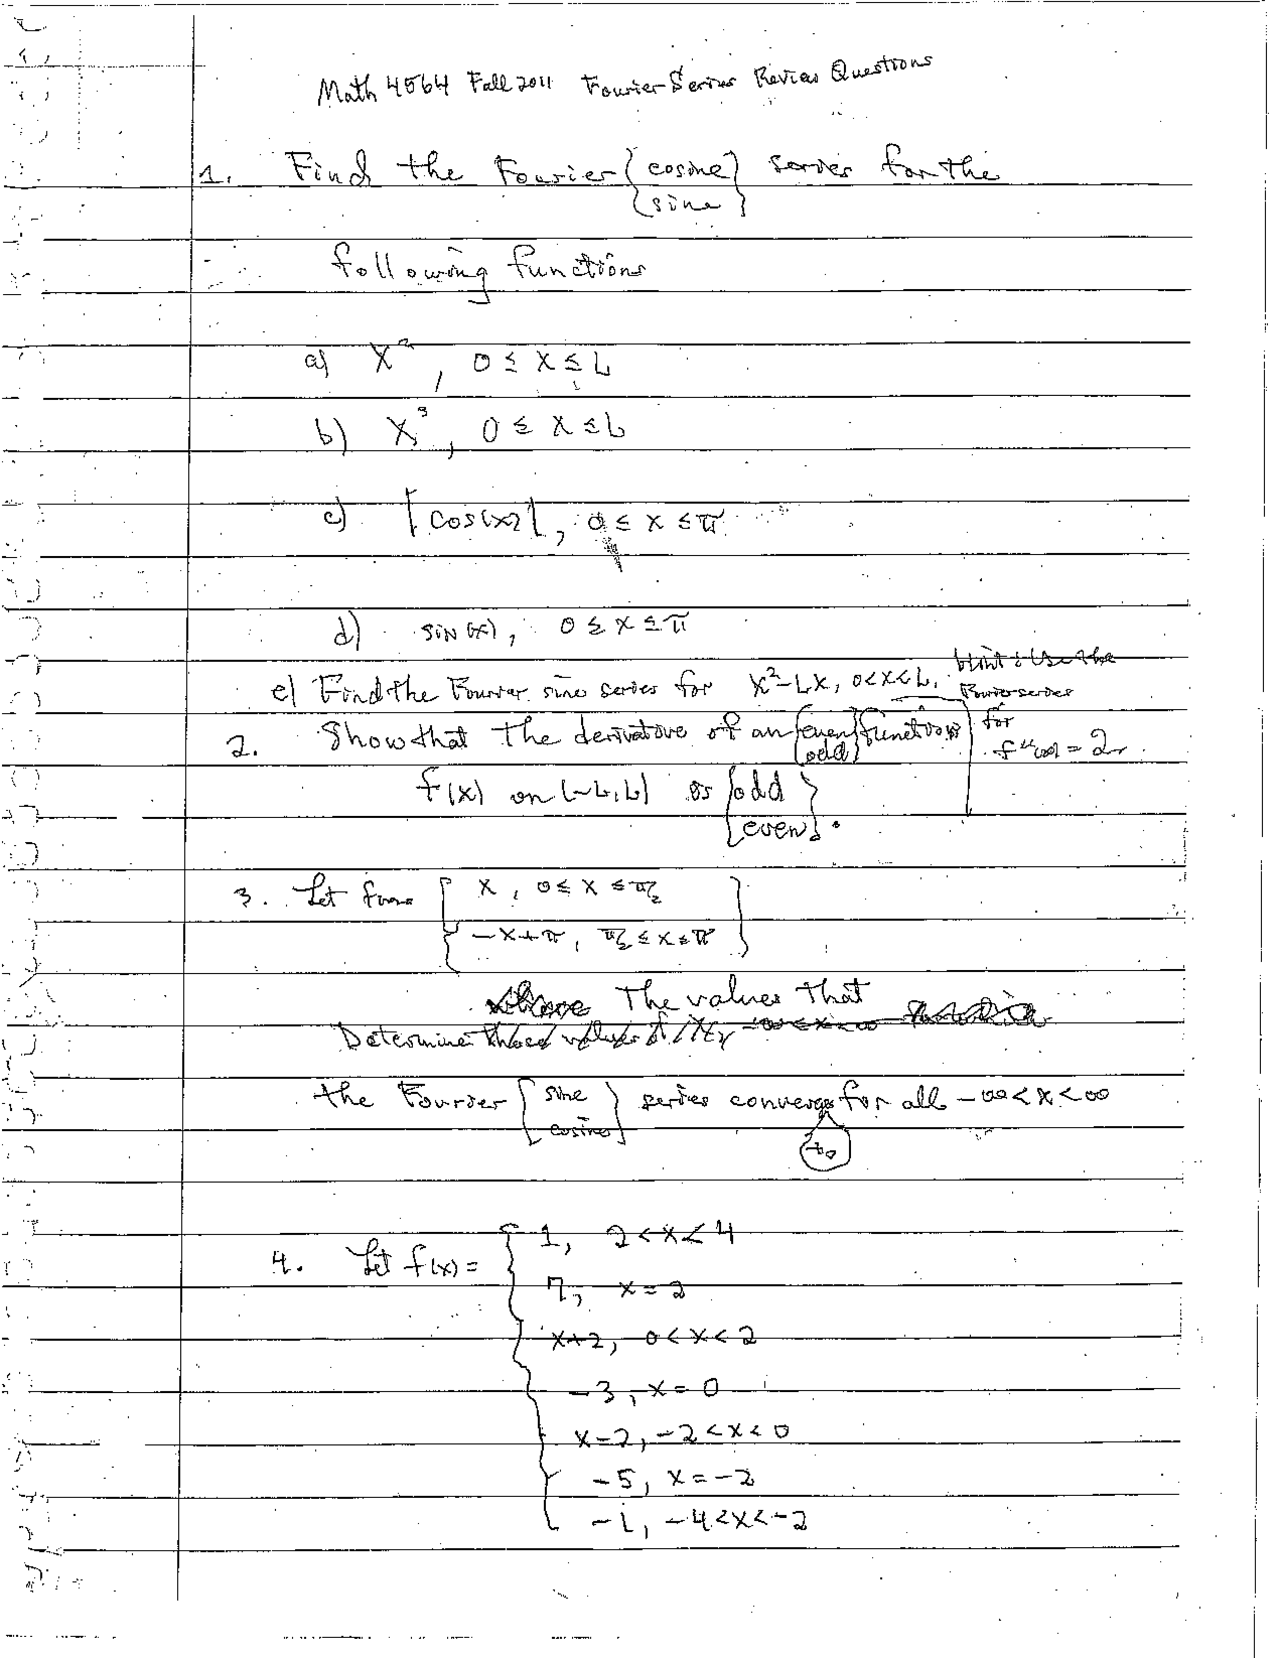 Math 4564 Fall 2011 Fourier Series Review Questions
1. Find the Fourier {cosine} series for the
{sine}
following functions
a) x², 0 ≤ x ≤ L
b) x³, 0 ≤ x ≤ L
c) |cos(x)|, 0 ≤ x ≤ π
d) sin(x), 0 ≤ x ≤ π
e) Find the Fourier sine series for x²-Lx, 0<x<L. Hint: Use the
Fourier series
for
f''(x) = 2
2. Show that the derivative of an {even} function
{odd}
f(x) on [-L,L] is {odd}
{even}.
3. Let f(x)= { x, 0 ≤ x ≤ π/2 }
{ -x+π, π/2 ≤ x ≤ π }
the values that
Determine
the Fourier {sine} series converges for all -∞<x<∞
{cosine}
to
4. Let f(x) = { 1, 2<x<4
7, x=2
x+2, 0<x<2
-3, x=0
x-2, -2<x<0
-5, x=-2
-1, -4<x<-2